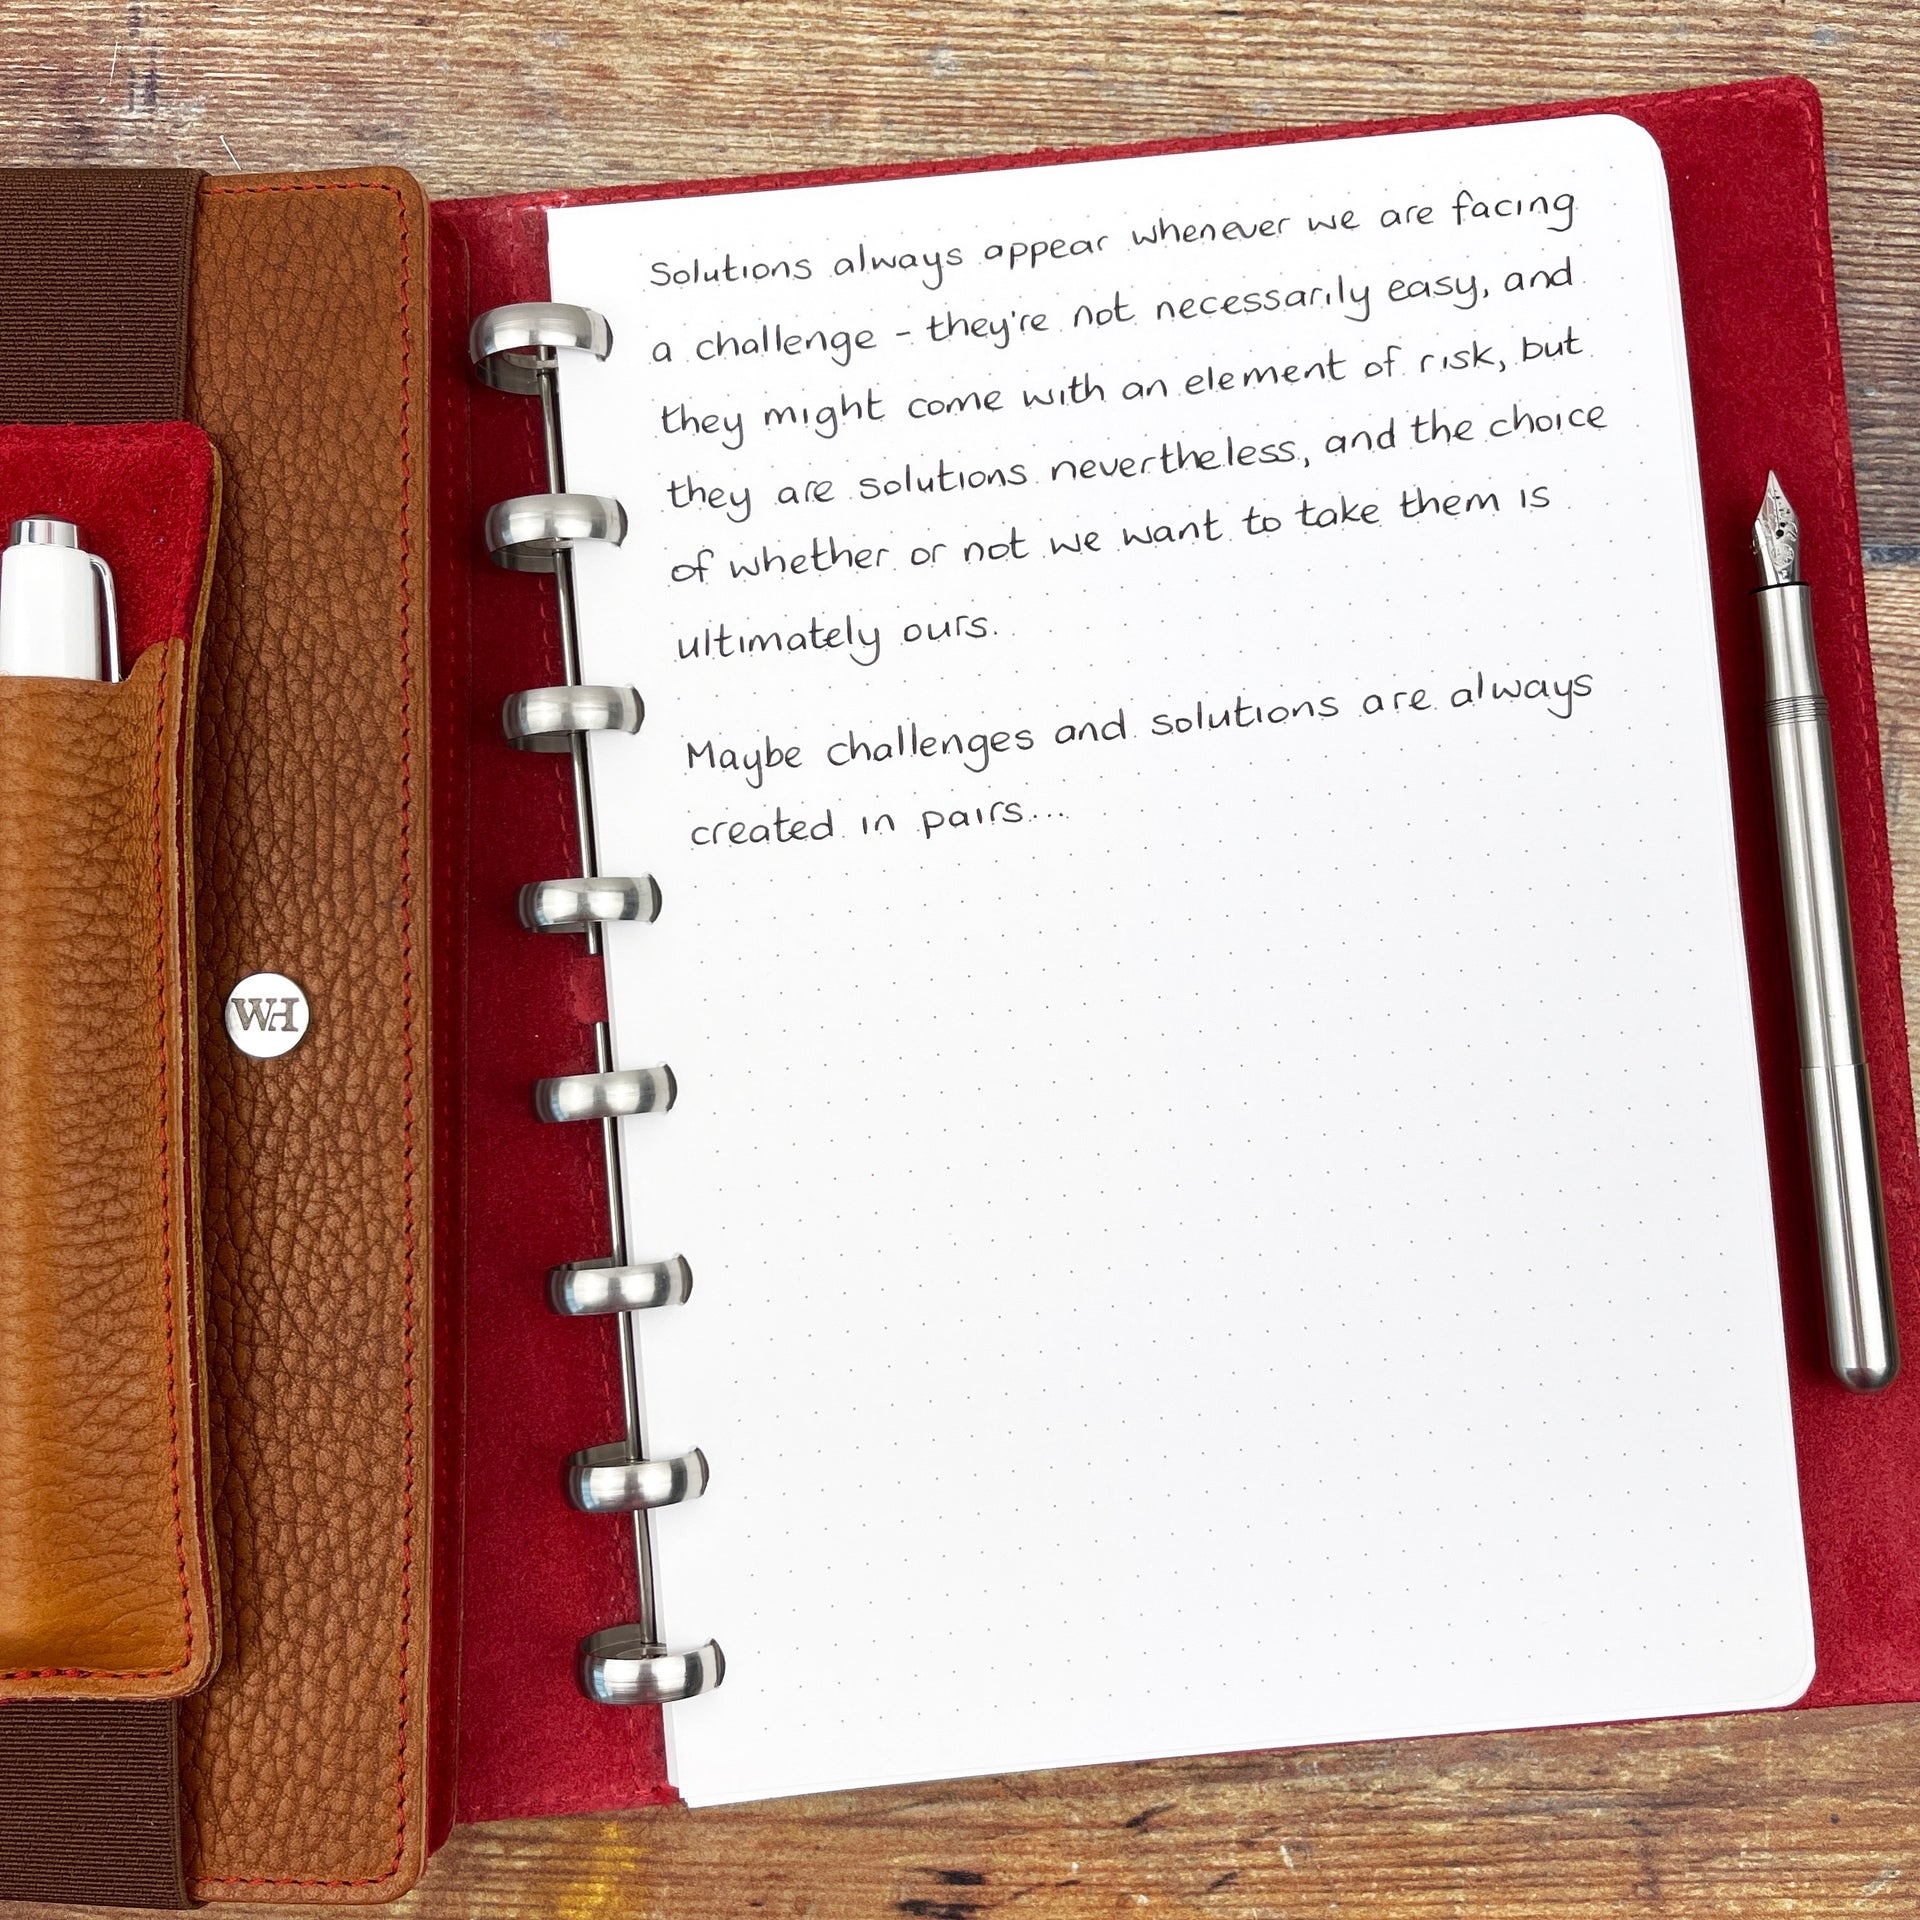 Solutions always appear whenever we are facing
a challenge - they're not necessarily easy, and
they might come with an element of risk, but
they are solutions nevertheless, and the choice
of whether or not we want to take them is
ultimately ours.
Maybe challenges and solutions are always
created in pairs...
WH